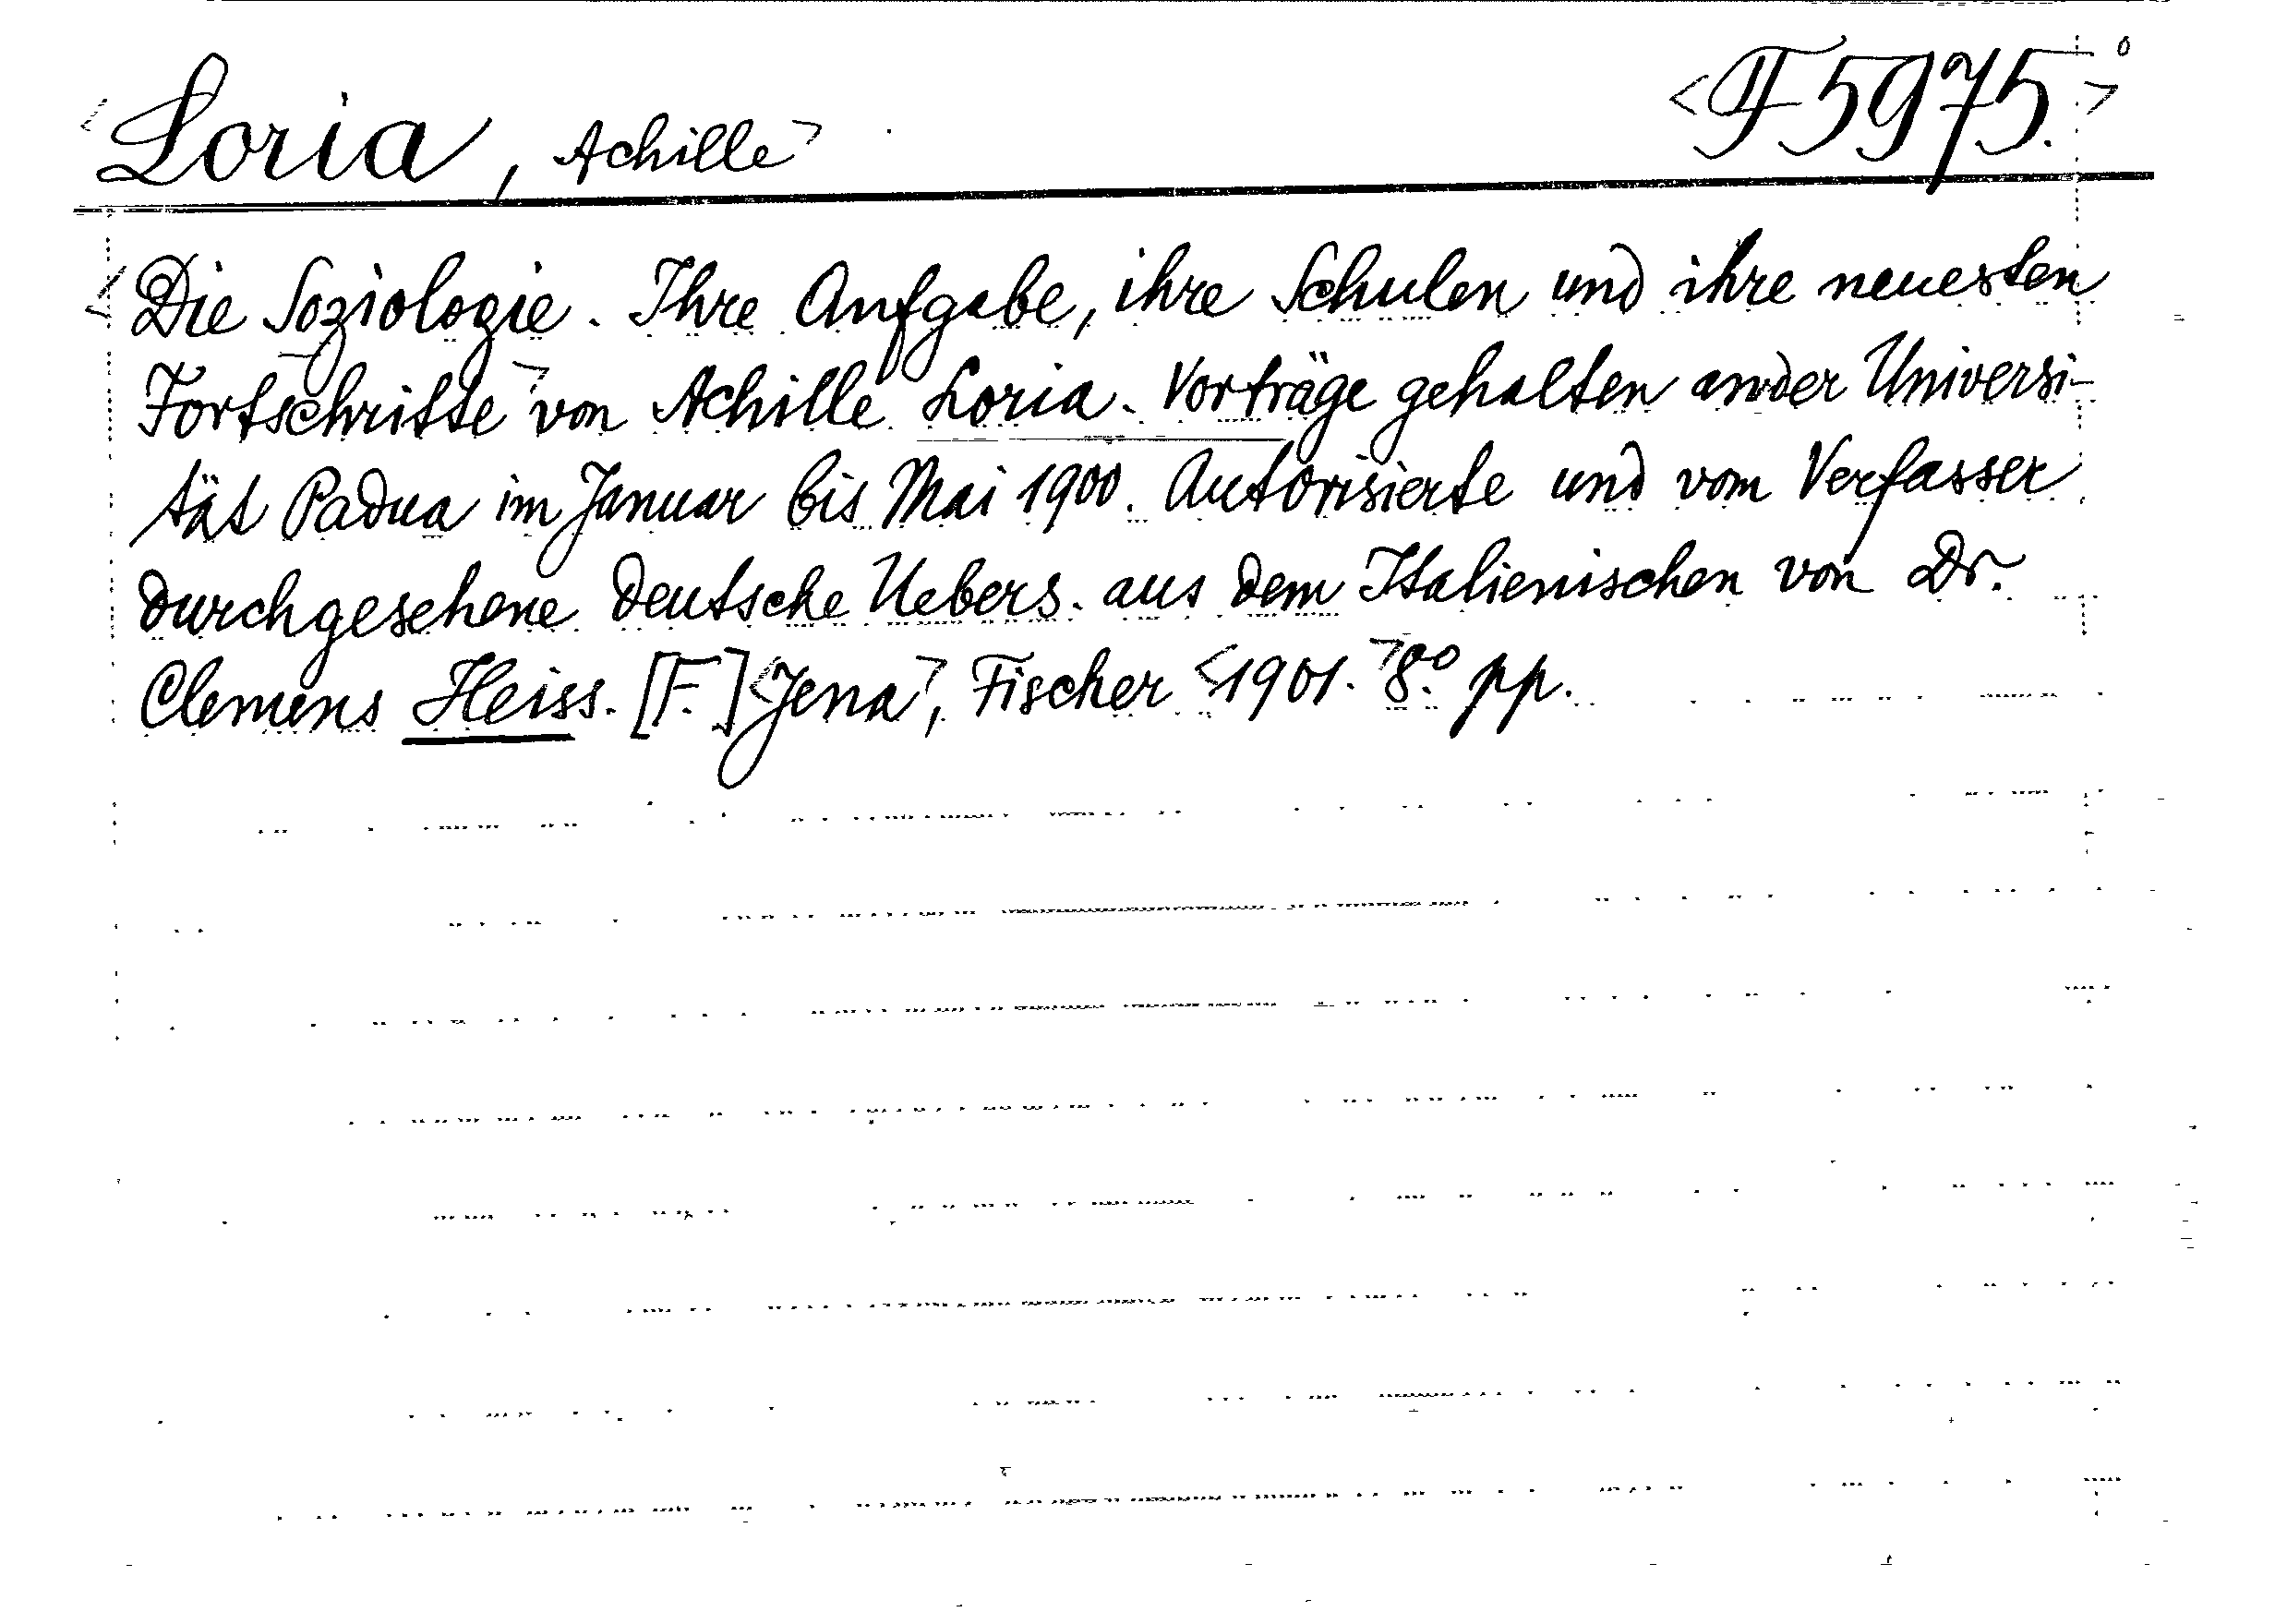 <Loria, Achille> <F 5975.>
<Die Soziologie. Ihre Aufgabe, ihre Schulen und ihre neuesten
Fortschritte> von Achille Loria. Vorträge gehalten an der Universi-
tät Padua im Januar bis Mai 1900. Autorisierte und vom Verfasser
durchgesehene deutsche Uebers. aus dem Italienischen von Dr.
Clemens Heiss. [F.] <Jena>, Fischer <1901.> 8.° pp.